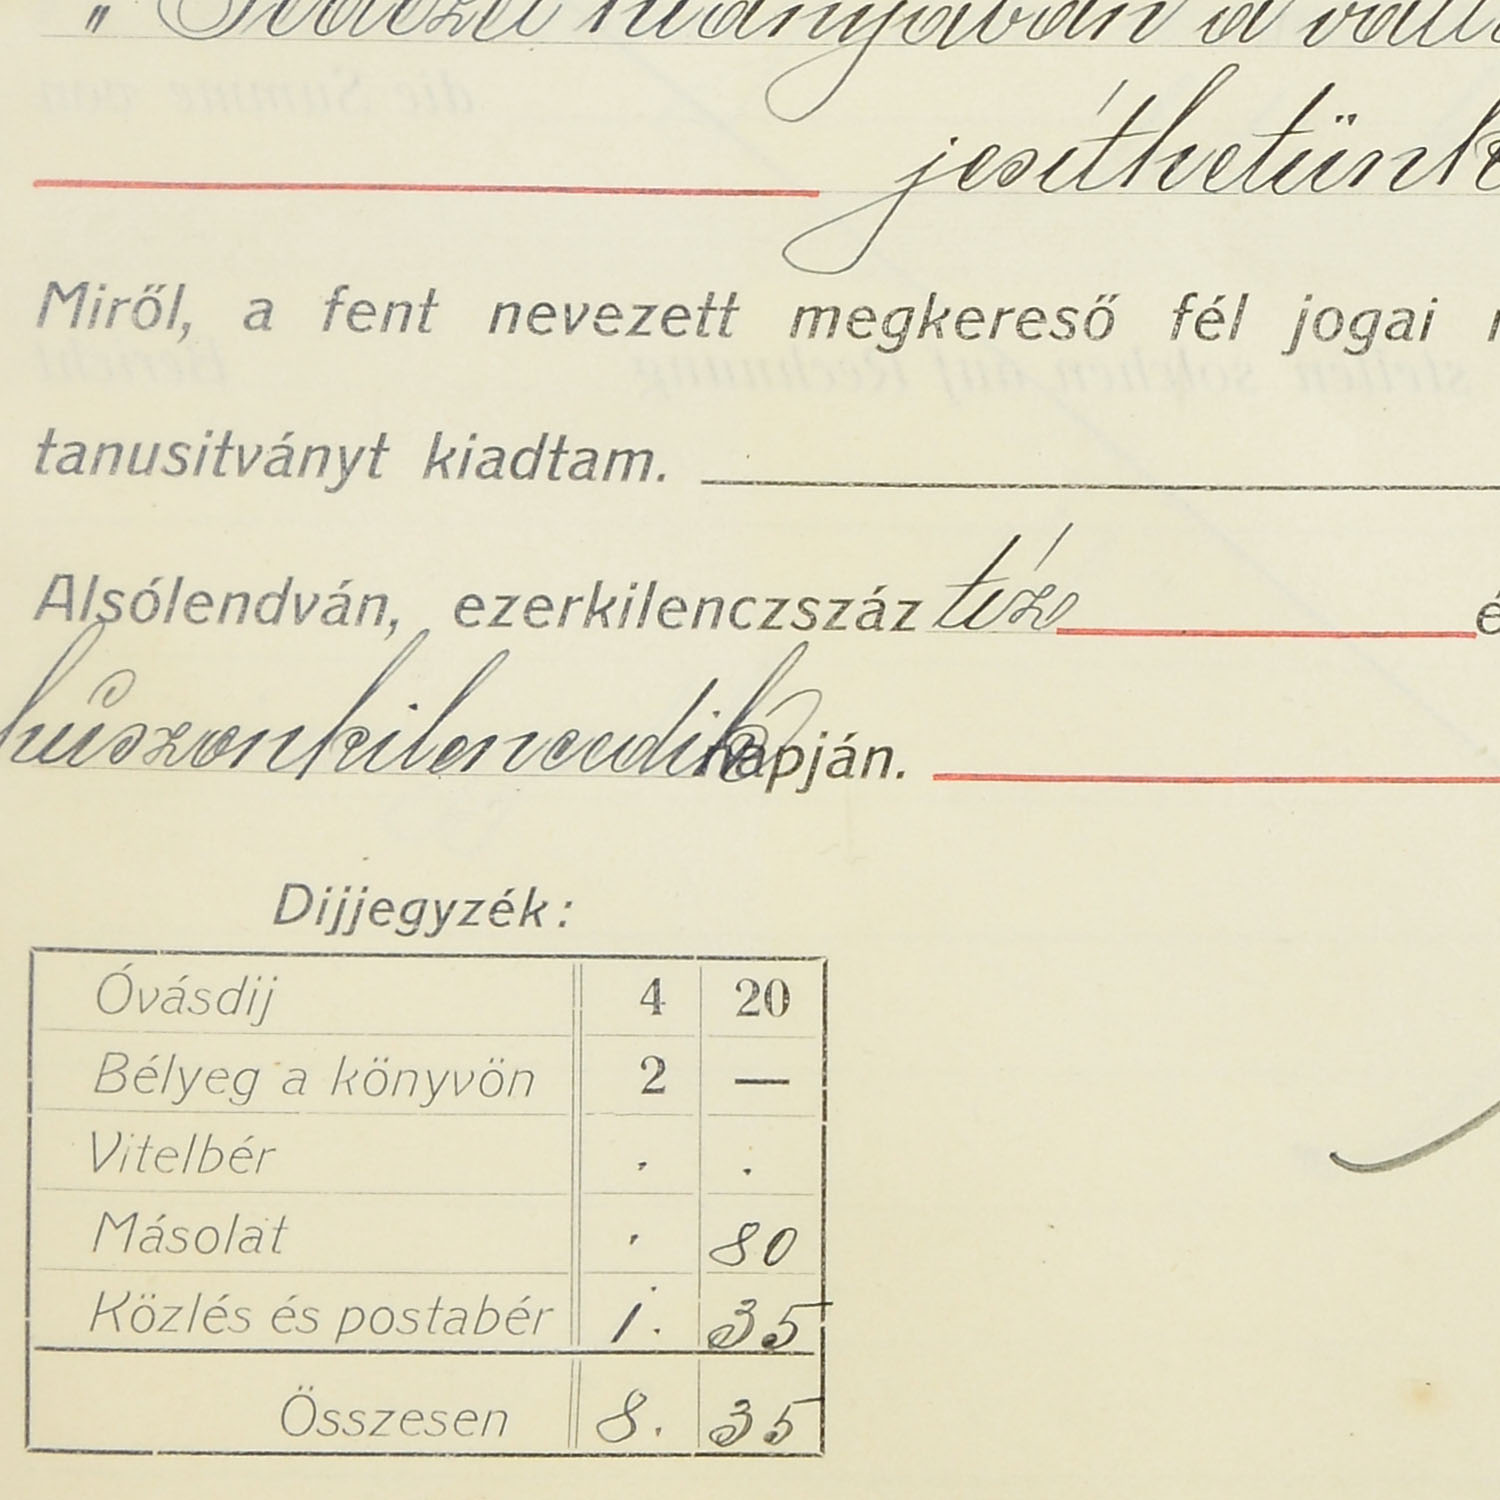 " Fedezet hiányában a váll
jesíthetünk
Miről, a fent nevezett megkereső fél jogai
tanusitványt kiadtam.
Alsólendván, ezerkilenczszáz tíz é
húszonkilencedik napján.
Dijjegyzék:
Óvásdij 4 20
Bélyeg a könyvön 2 —
Vitelbér . .
Másolat . 80
Közlés és postabér 1. 35
Összesen 8. 35